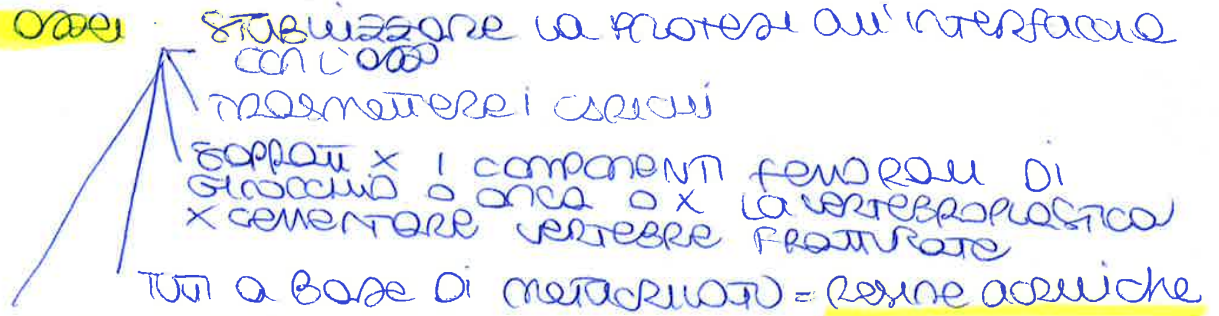 ossei STABILIZZARE LA PROTESI All'INTERFACCIA
CON L'OSSO
TRASMETTERE I CARICHI
X I COMPONENTI FEMORALI DI
GINOCCHIO O ANCA O X LA VERTEBROPLASTICA
X CEMENTARE VERTEBRE FRATTURATE
TUTTI A BASE DI METACRILATO = RESINE ACRILICHE